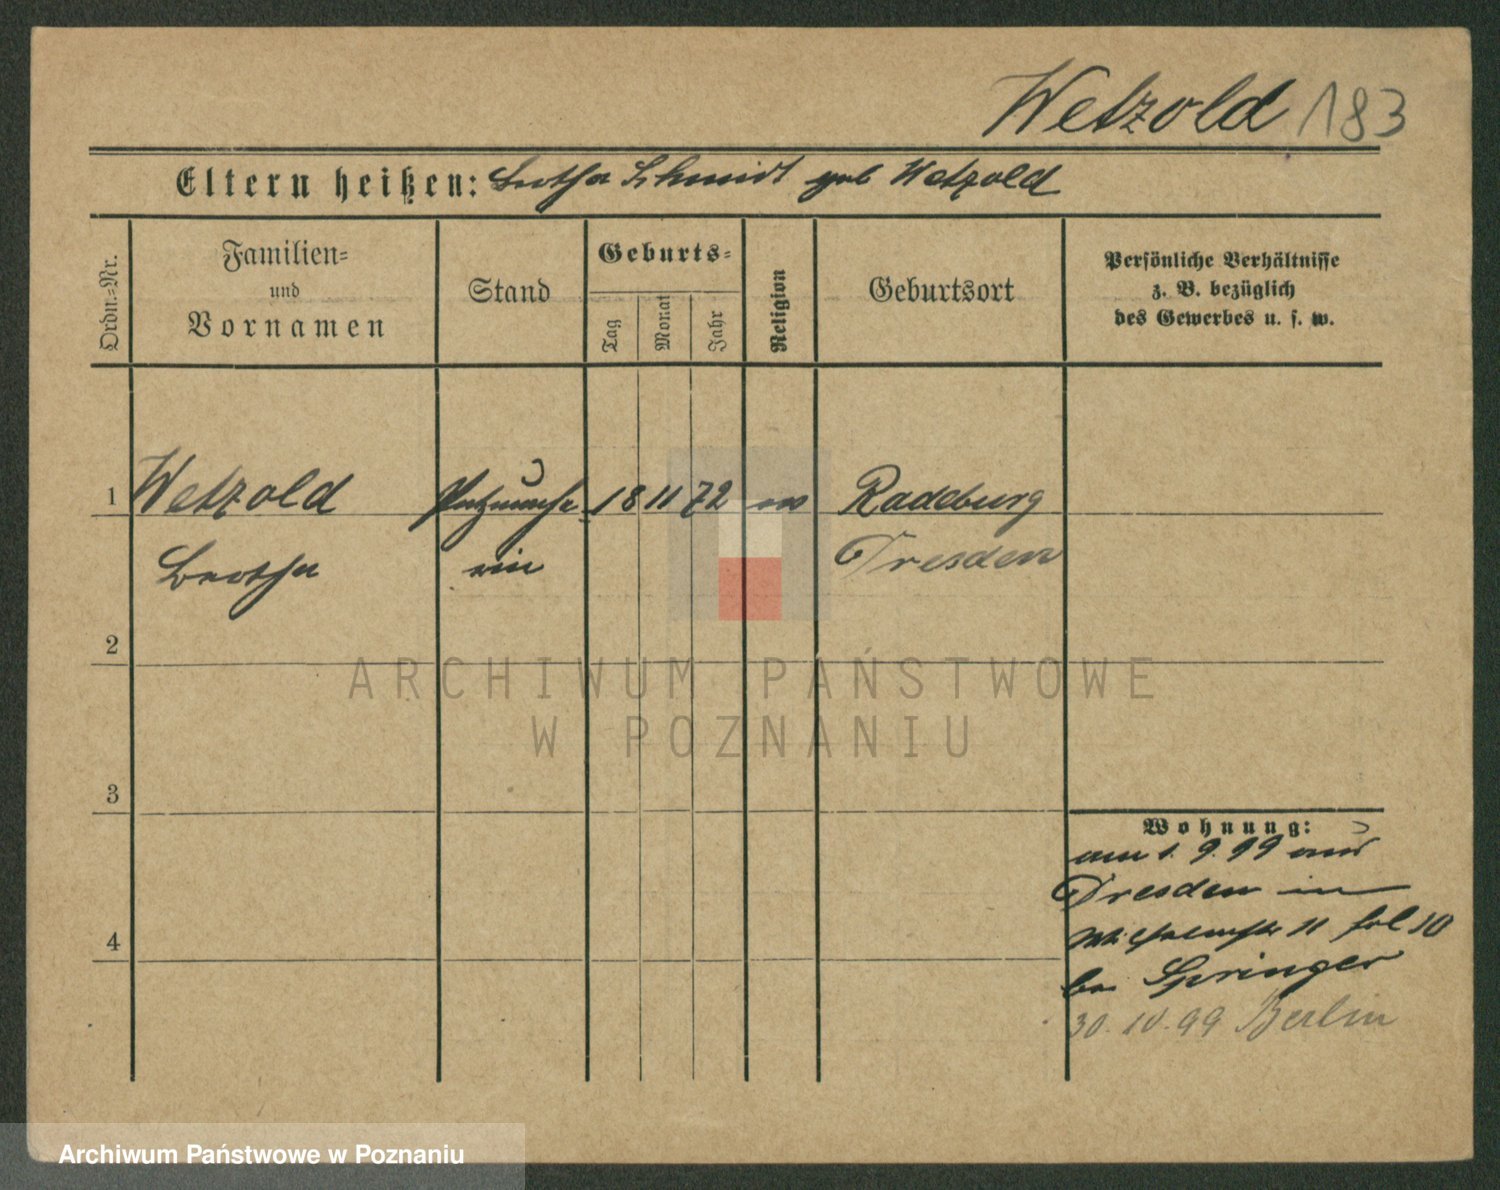 Wetzold 183
Eltern heißen: Bertha Schmidt geb Wetzold
Ordn.-Nr.
Familien-
und
Vornamen
Stand
Geburts-
Tag
Monat
Jahr
Religion
Geburtsort
Persönliche Verhältnisse
z. B. bezüglich
des Gewerbes u. s. w.
1 Wetzold Putzmache 18 11 72 ev Radeburg
Bertha rin Dresden
2
3
4
Wohnung:
am 1. 9. 99 aus
Dresden in
Wilhelmstr 11 fol 10
bei Springer
30. 10. 99 Berlin
ARCHIWUM PAŃSTWOWE
W POZNANIU
Archiwum Państwowe w Poznaniu